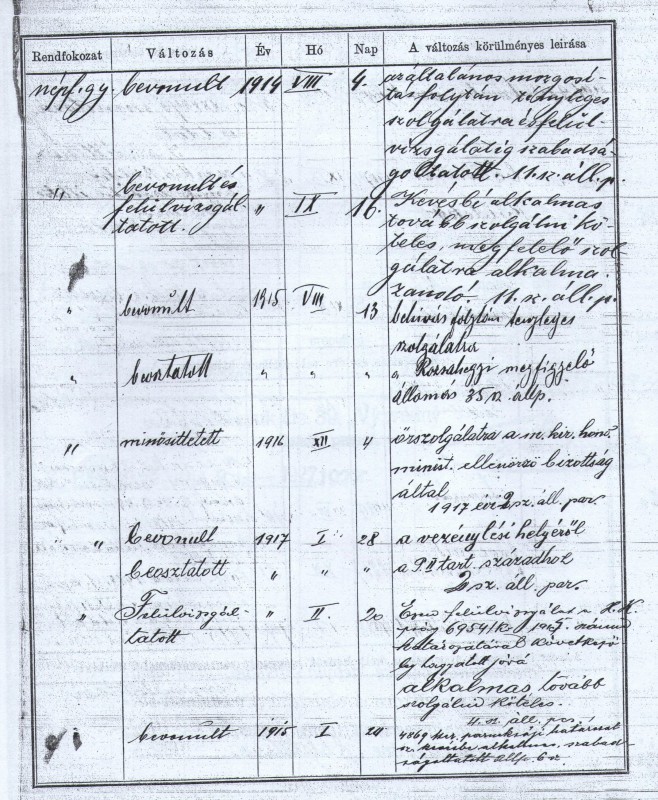 Rendfokozat Változás Év Hó Nap A változás körülményes leirása
népf. gy. bevonult 1914 VIII 4. az általános mozgósi-
tás folytán tényleges
szolgálatra és felül-
vizsgálatig szabadsá-
goltatott. 11. sz. áll. p.
" bevonult és
felülvizsgál-
tatott. " IX 16. Kevésbé alkalmas
tovább szolgálni kö-
teles, megfelelő szol-
gálatra alkalma-
zandó. 11. sz. áll. p.
" bevonult 1915 VIII 13 behivás folytán tényleges
szolgálatra
" beosztatott " " " a Rózsahegyi megfigyelő
állomás 35 sz. állp.
" minősittetett 1916 XII 4 őrszolgálatra a m. kir. honv.
minist. ellenőrző bizottság
által
1917 évi 2 sz. áll. par.
" " bevonult 1917 I 28 a vezénylési helyéről
beosztatott " " " a P. II tart. századhoz
2 sz. áll. par.
" Felülvizsgál-
tatott " II 20 felülvizsgálat
6954/
határozatával következő-
leg hagyatott jóvá
alkalmas tovább
szolgálni köteles.
4. sz. áll. par.
bevonult 1915 I 24 4869 határozat
szabad-
ságoltatott állp. 6 sz.